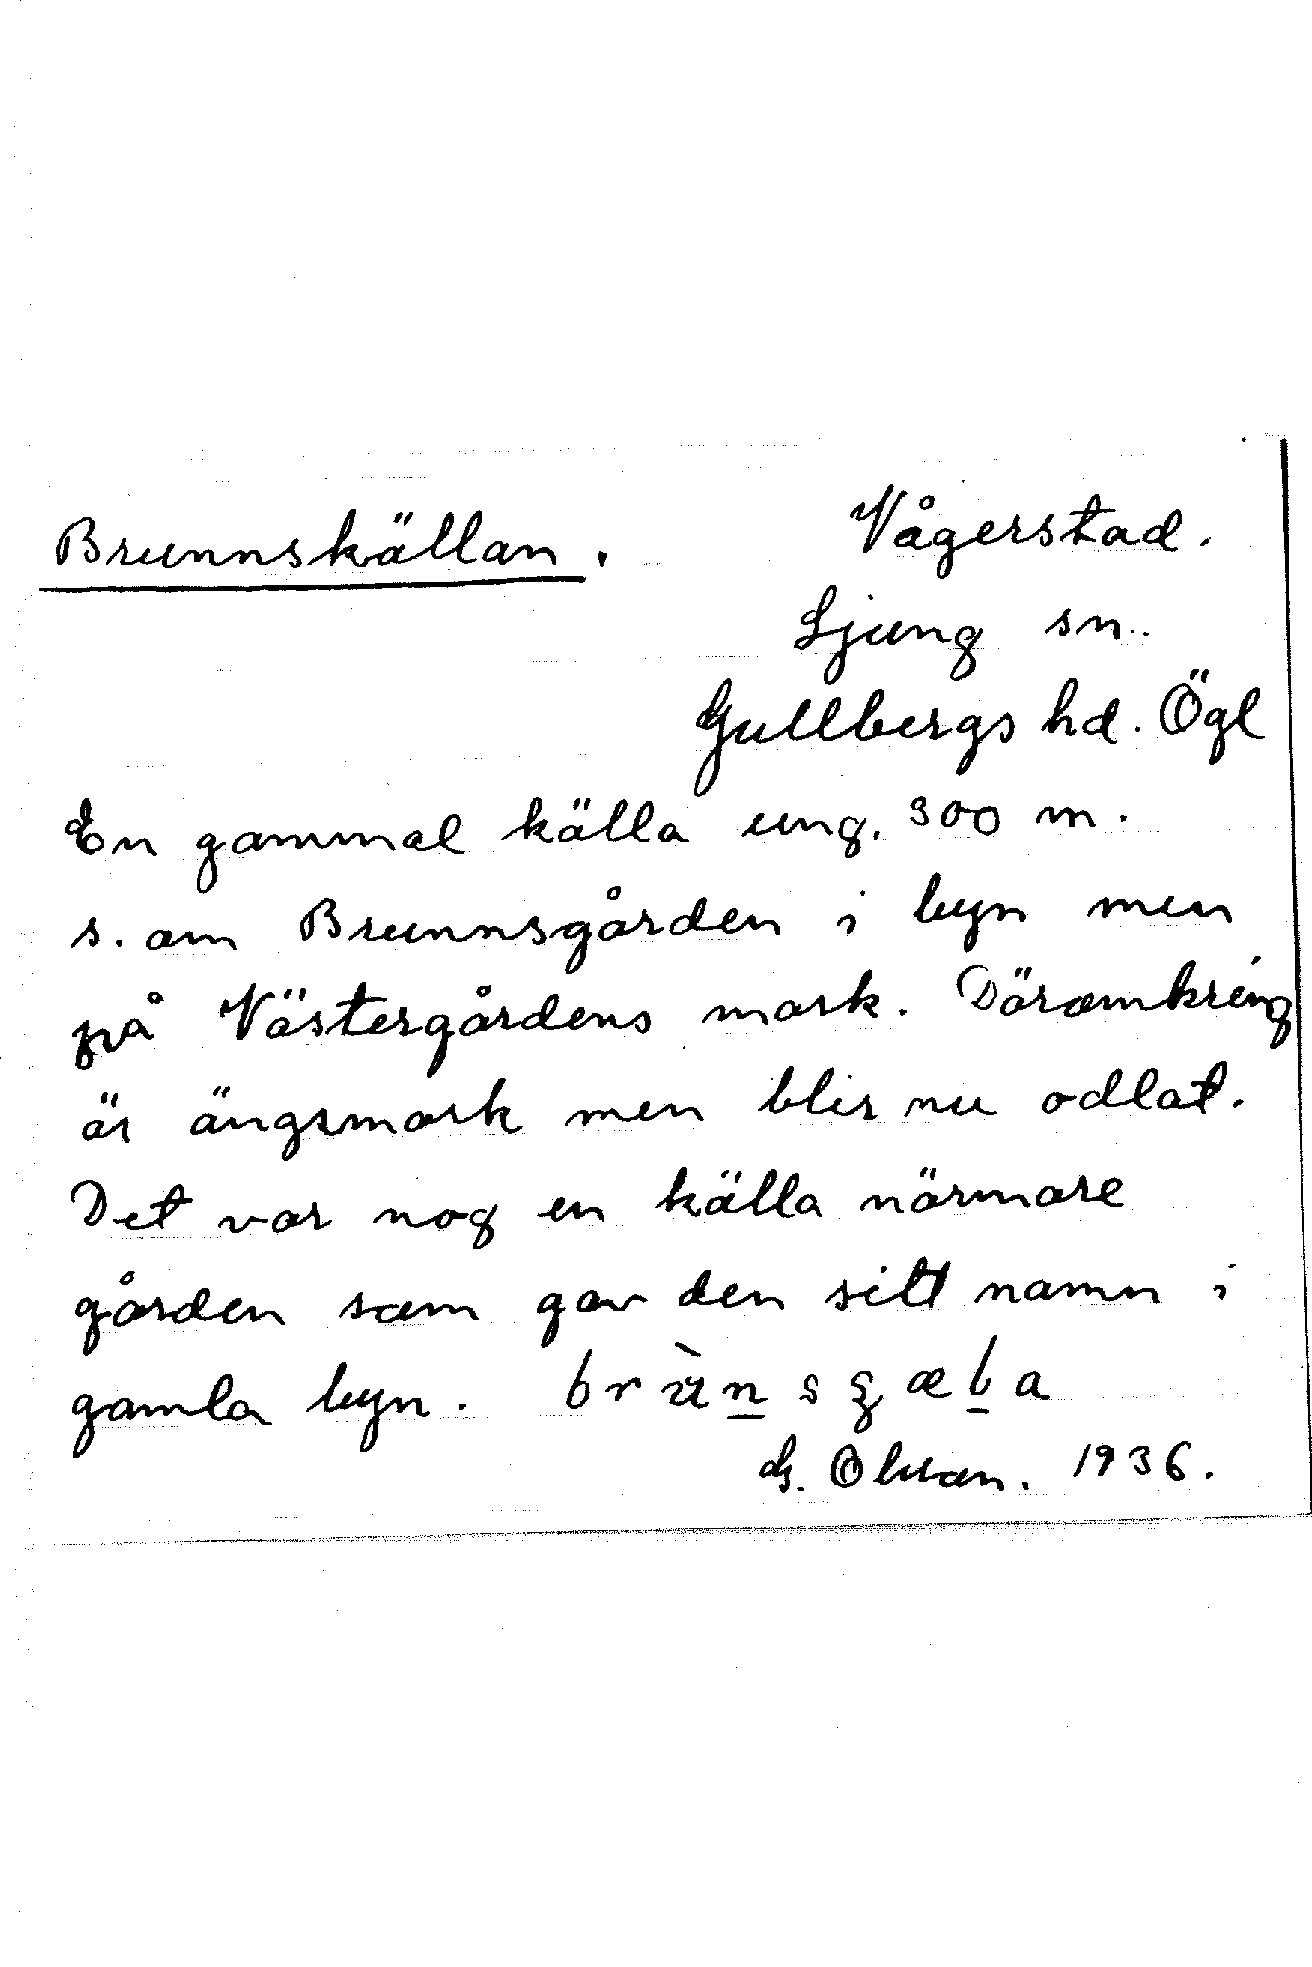 Brunnskällan.
Vågerstad.
Ljung sn.
Gullbergs hd. Ögl
En gammal källa ung. 300 m.
s. om Brunnsgården i byn men
på Västergårdens mark. Däromkring
är ängsmark men blir nu odlat.
Det var nog en källa närmare
gården som gav den sitt namn i
gamla byn.
G. Olsson. 1936.